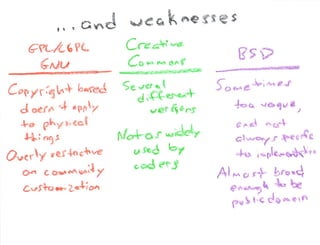 ...and weaknesses
GPL/LGPL
GNU
Copyright based
doesn't apply
to physical
things
Overly restrictive
on community
customization
Creative
Commons
Several
different
versions
Not as widely
used by
coders
BSD
Sometimes
too vague,
and not
always specific
to implementation
Almost broad
enough to be
public domain